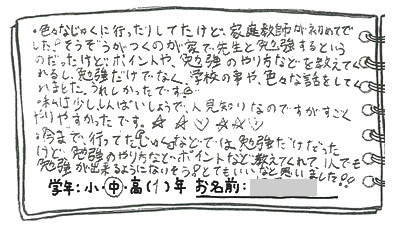 ・色々なじゅくに行ったりしてたけど、家庭教師が初めてで
した。そうぞうがつくのが家で、先生と勉強するという
のだったけど、ポイントや、勉強のやり方などを教えてく
れるし、勉強だけでなく、学校の事や、色々な話をしてく
れました。うれしかったです。
・私は少ししんぱいしょうで、人見知りなのですがすごく
やりやすかったです。☆☆♡☆☆
・今まで、行ってたじゅくなどでは、勉強だけだった
けど、勉強のやり方など、ポイントなど教えてくれて、1人でも
勉強が出来るようになりそう!とてもいいなと思いました!!
学年:小・中・高(1)年 お名前: